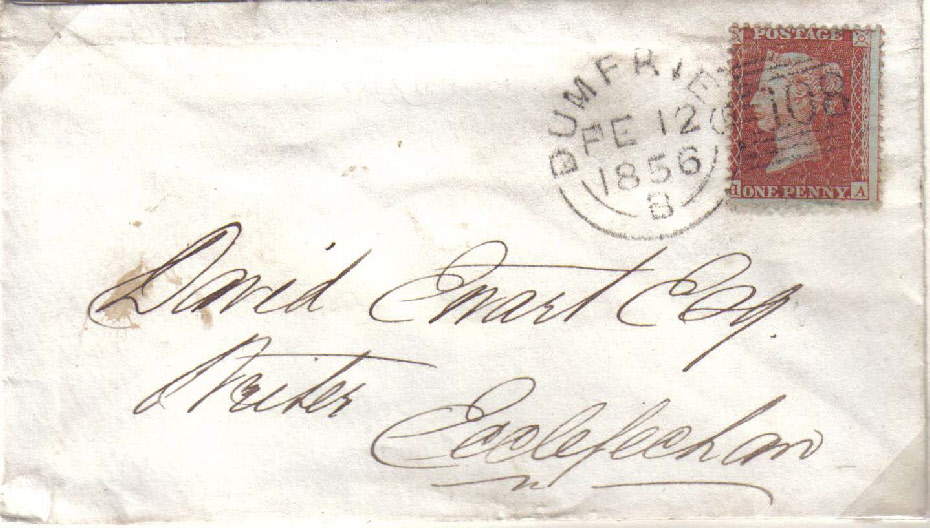 POSTAGE
DUMFRIES
FE 12
1856
B
108
ONE PENNY
A
David Ewart Esq.
Writer
Ecclefechan